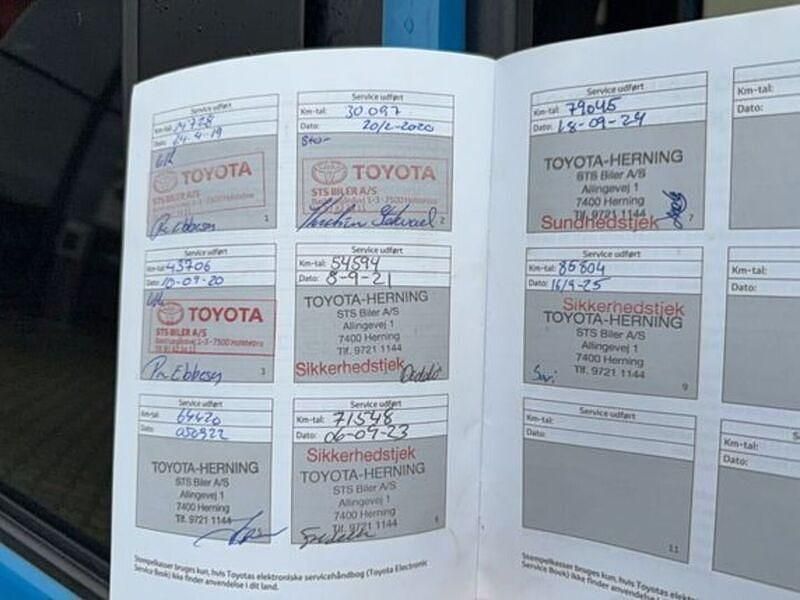 Service udført
Km-tal: 14728
Dato: 24-4-19
TOYOTA
STS BILER A/S
1-3 - 7500 Holstebro
Pn Ebbesen
1
Service udført
Km-tal: 30097
Dato: 20/2-2020
TOYOTA
STS BILER A/S
1-3 - 7500 Holstebro
2
Service udført
Km-tal: 43706
Dato: 10-09-20
TOYOTA
STS BILER A/S
1-3 - 7500 Holstebro
Pn Ebbesen
3
Service udført
Km-tal: 54594
Dato: 8-9-21
TOYOTA-HERNING
STS Biler A/S
Allingevej 1
7400 Herning
Tlf. 9721 1144
Sikkerhedstjek
Service udført
Km-tal: 64420
Dato: 050922
TOYOTA-HERNING
STS Biler A/S
Allingevej 1
7400 Herning
Tlf. 9721 1144
Service udført
Km-tal: 71548
Dato: 06-09-23
Sikkerhedstjek
TOYOTA-HERNING
STS Biler A/S
Allingevej 1
7400 Herning
Tlf. 9721 1144
6
Stempelkasser bruges kun, hvis Toyotas elektroniske servicehåndbog (Toyota Electronic
Service Book) ikke finder anvendelse i dit land.
Service udført
Km-tal: 79045
Dato: 18-09-24
TOYOTA-HERNING
STS Biler A/S
Allingevej 1
7400 Herning
Tlf. 9721 1144
Sundhedstjek
7
Service udført
Km-tal: 85804
Dato: 16/9-25
Sikkerhedstjek
TOYOTA-HERNING
STS Biler A/S
Allingevej 1
7400 Herning
Tlf. 9721 1144
9
Service udført
Km-tal:
Dato:
11
Km-tal:
Dato:
Km-tal:
Dato:
Km-tal:
Dato:
Stempelkasser bruges kun, hvis Toyotas elektroniske
Service Book) ikke finder anvendelse i dit land.